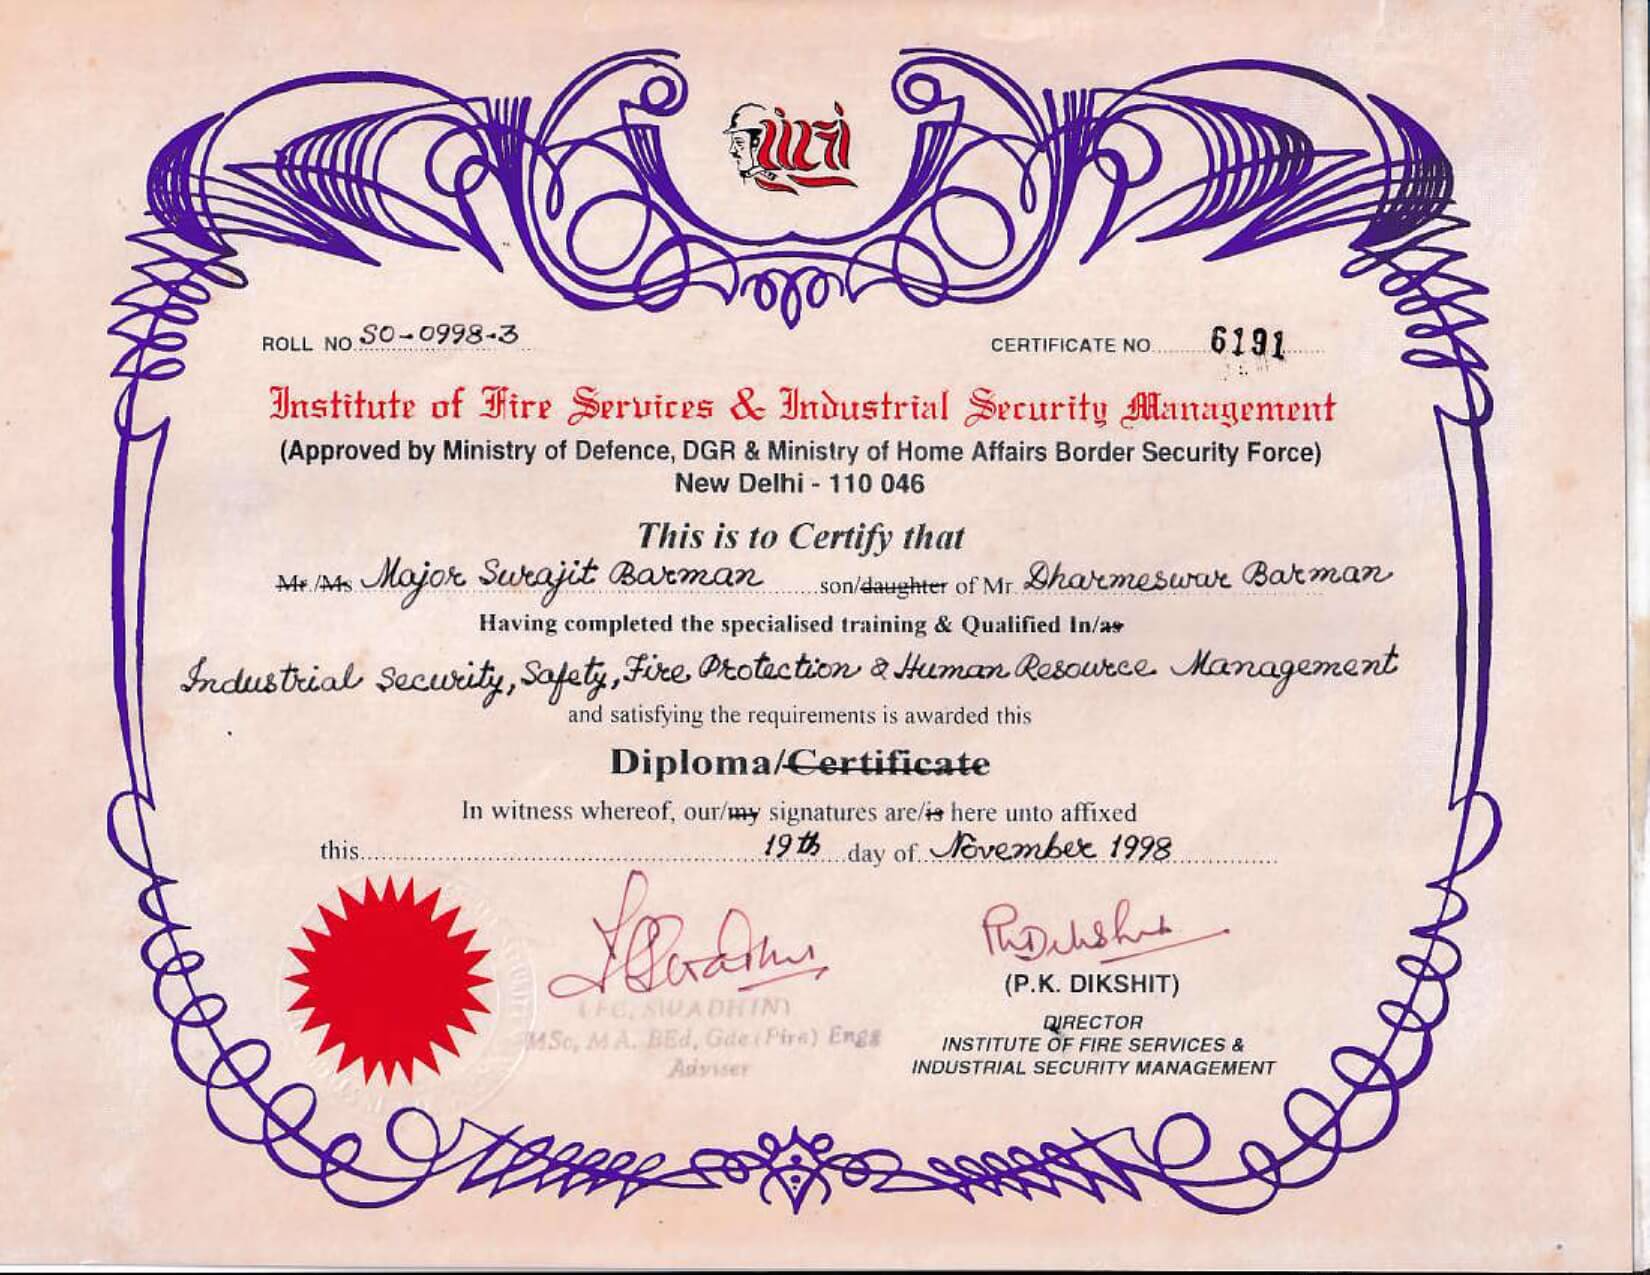 ROLL NO SO-0998-3
CERTIFICATE NO 6191
Institute of Fire Services & Industrial Security Management
(Approved by Ministry of Defence, DGR & Ministry of Home Affairs Border Security Force)
New Delhi - 110 046
This is to Certify that
Mr./Ms Major Surajit Barman son/daughter of Mr. Dharmeswar Barman
Having completed the specialised training & Qualified In/as
Industrial Security, Safety, Fire Protection & Human Resource Management
and satisfying the requirements is awarded this
Diploma/Certificate
In witness whereof, our/my signatures are/is here unto affixed
this 19th day of November 1998
SWADHIN)
MSc, M A, BEd, Gde (Fire) Engg
Adviser
(P.K. DIKSHIT)
DIRECTOR
INSTITUTE OF FIRE SERVICES &
INDUSTRIAL SECURITY MANAGEMENT